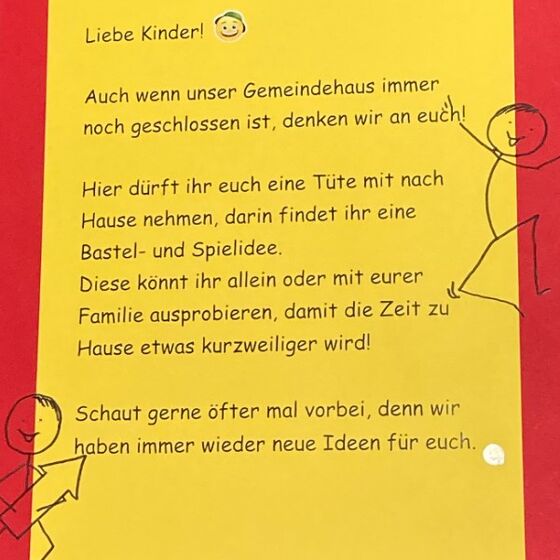 Liebe Kinder!
Auch wenn unser Gemeindehaus immer
noch geschlossen ist, denken wir an euch!
Hier dürft ihr euch eine Tüte mit nach
Hause nehmen, darin findet ihr eine
Bastel- und Spielidee.
Diese könnt ihr allein oder mit eurer
Familie ausprobieren, damit die Zeit zu
Hause etwas kurzweiliger wird!
Schaut gerne öfter mal vorbei, denn wir
haben immer wieder neue Ideen für euch.